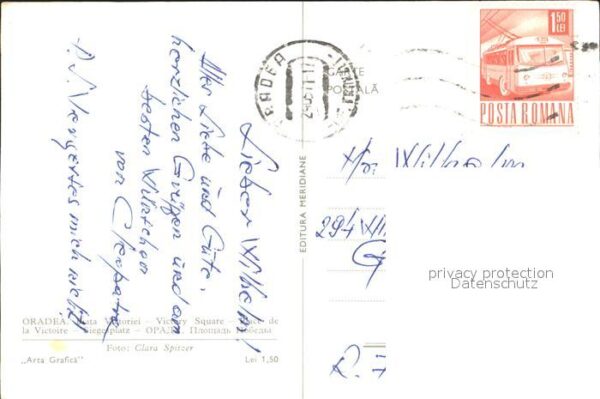 Lieber Wilhelm!
Alles Liebe und Gute,
herzlichen Grüßen und am
besten Wünschen
von Cleopatra
P.S. Vergertes mich nicht!
ORADEA. Piața Victoriei - Victory Square - Place de
la Victoire - Siegesplatz - ОРАДЯ. Площадь Победы
Foto: Clara Spitzer
„Arta Grafică"
Lei 1,50
EDITURA MERIDIANE
CARTE
POȘTALĂ
ORADEA
1,50
LEI
POSTA ROMANA
Wilhelm
294
privacy protection
Datenschutz